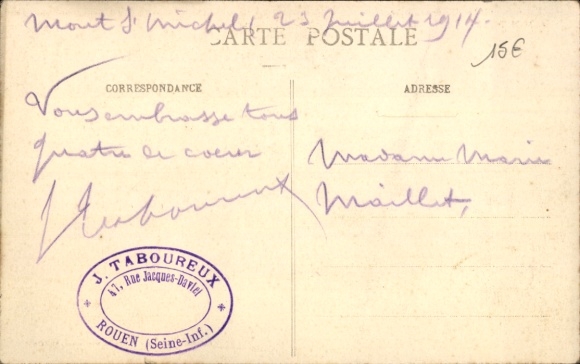 Mont St Michel, 23 Juillet 1914.
CARTE POSTALE
15€
CORRESPONDANCE
Vous embrasse tous
quatre de coeur
J Taboureux
J. TABOUREUX
47, Rue Jacques-Daviel
ROUEN (Seine-Inf.)
ADRESSE
Madame Marie
Maillet,